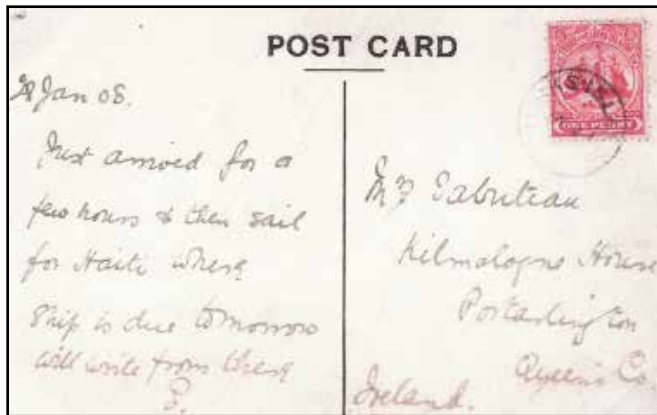 POST CARD
28 Jan 08.
Just arrived for a
few hours & then sail
for Haiti where
Ship is due tomorrow
will write from there
ONE PENNY
Kilmalogue House
Portarlington
Queen's Co.
Ireland.